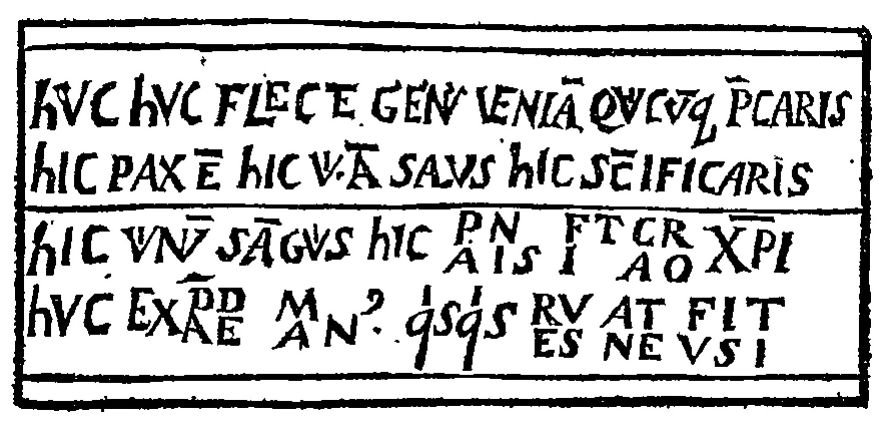 hVC hVC FLECTE GENV VENIĀ QVICV̄Q P̄CARIS
hIC PAX Ē hIC VI·Ā SALVS hIC SC̄IFICARIS
hIC VINV̄ SĀGVIS hIC PANIS FIT CARO XP̄I
hVC EXPĀDE MANꝰ qiSqiS REVS ANTE FVISTI